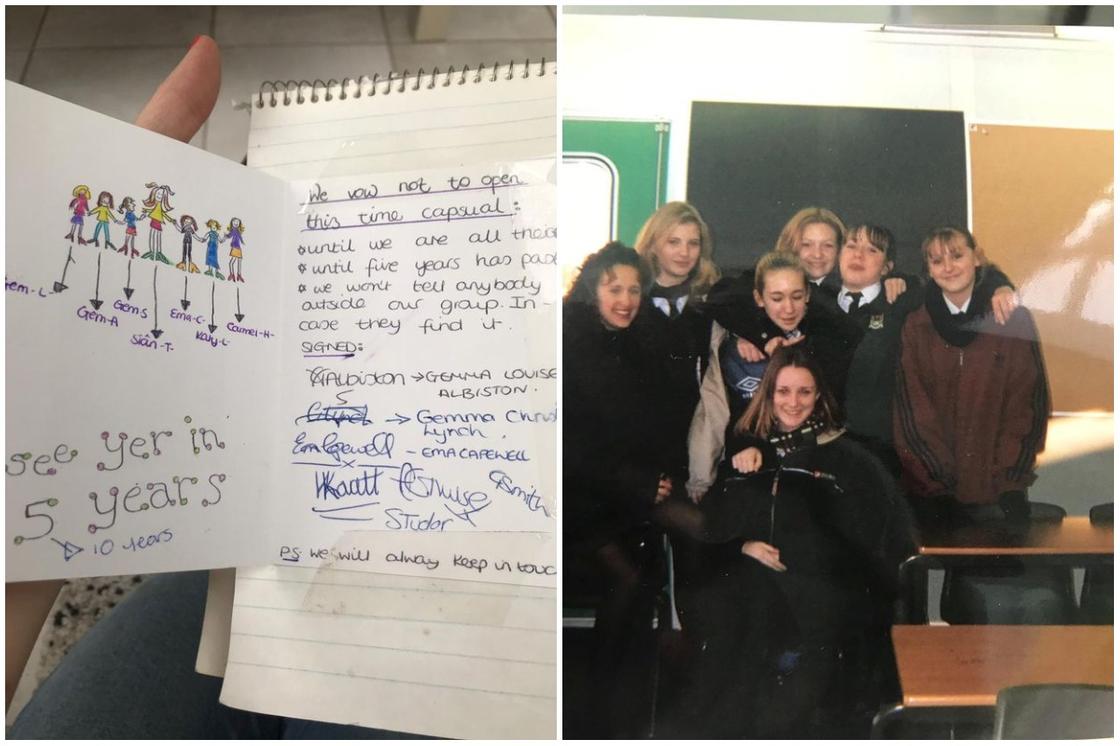 Gem-S
Ema-C-
Carmel-H-
Gem-A
Katy-L-
Siân-T-
see yer in
5 years
10 years
We vow not to open
this time capsual:
until we are all
until five years has
we won't tell anybody
outside our group. In-
case they find it.
SIGNED:
GAlbiston → GEMMA LOUISE
ALBISTON.
→ Gemma
Lynch.
EmCapewell - EMA CAPEWELL
CSmith
STudor
PS. we will alway keep in